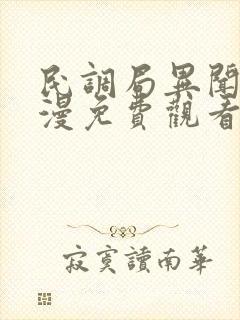 民調局異聞
漫免費觀看
寂寞讀南華